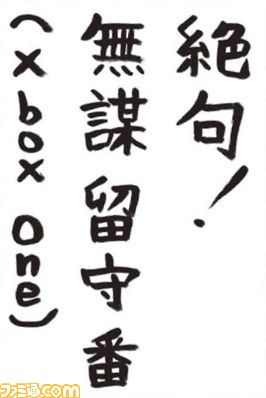 絶句！
無謀留守番
（xbox One）
ファミ通com